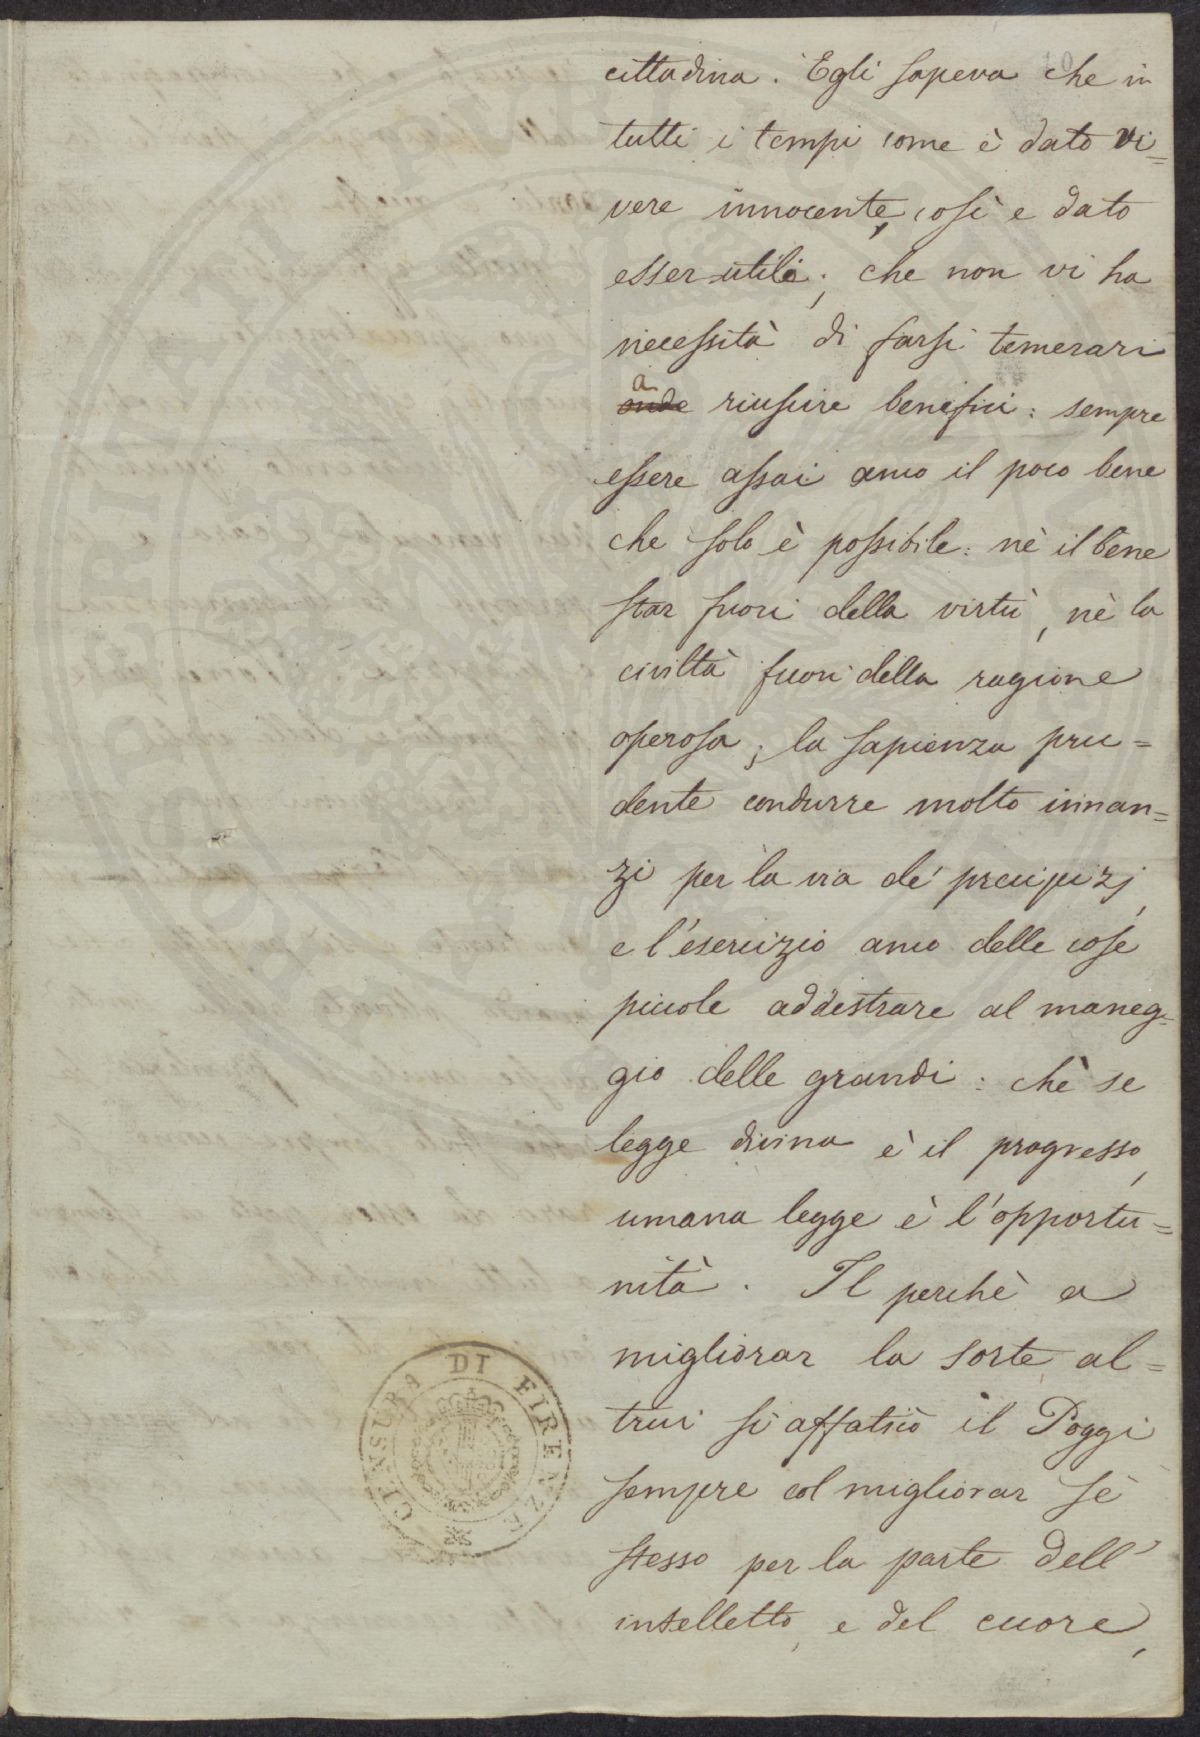 cittadina. Egli sapeva che in
tutti i tempi come è dato vi=
vere innocente, così e dato
esser utile; che non vi ha
necessità di farsi temerari
a
onde riuscire benefici: sempre
essere assai anco il poco bene
che solo è possibile: nè il bene
star fuori della virtù, nè la
civiltà fuori della ragione
operosa; la sapienza pru=
dente condurre molto innan=
zi per la via de' precipizj,
e l'esercizio anco delle cose
piccole addestrare al maneg=
gio delle grandi: chè se
legge divina è il progresso,
umana legge è l'opportu=
nità. Il perchè a
migliorar la sorte al=
trui si affaticò il Poggi
sempre col migliorar sè
stesso per la parte dell'
intelletto, e del cuore,
CENSURA DI FIRENZE